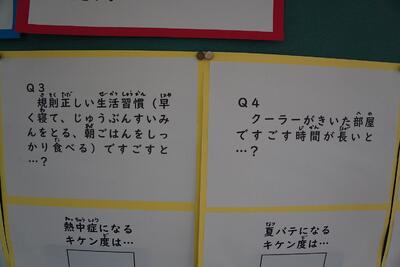 Q3
規則正しい生活習慣（早
く寝て、じゅうぶんすいみ
んをとる、朝ごはんをしっ
かり食べる）ですごすと
…？
熱中症になる
キケン度は…
Q4
クーラーがきいた部屋
ですごす時間が長いと
…？
夏バテになる
キケン度は…